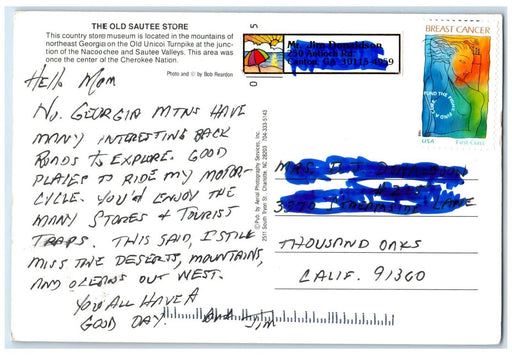 THE OLD SAUTEE STORE
This country store museum is located in the mountains of
northeast Georgia on the Old Unicoi Turnpike at the junc-
tion of the Nacoochee and Sautee Valleys. This area was
once the center of the Cherokee Nation.
Photo and © by Bob Reardon
Hello Mom
No. GEORGIA MTNS HAVE
MANY INTERESTING BACK
ROADS TO EXPLORE. GOOD
PLACES TO RIDE MY MOTOR-
CYCLE. YOU'D ENJOY THE
MANY STORES & TOURIST
TRAPS. THIS SAID, I STILL
MISS THE DESERTS, MOUNTAINS,
AND OCEANS OUT WEST.
YOU ALL HAVE A
GOOD DAY. Jim
© Pub. by Aerial Photography Services, Inc.
2511 South Tryon St., Charlotte, NC 28203 704-333-5143
Mr. Jim Donaldson
Canton, GA 30115-4959
BREAST CANCER
FUND THE FIGHT. FIND A CURE.
USA First-Class
MRS.
LANE
THOUSAND OAKS
CALIF. 91360